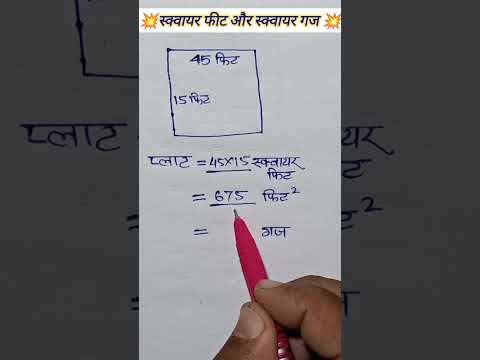 💥स्क्वायर फीट और स्क्वायर गज 💥
45 फिट
15 फिट
प्लाट = 45×15 स्क्वायर
फिट
= 675 फिट²
= गज